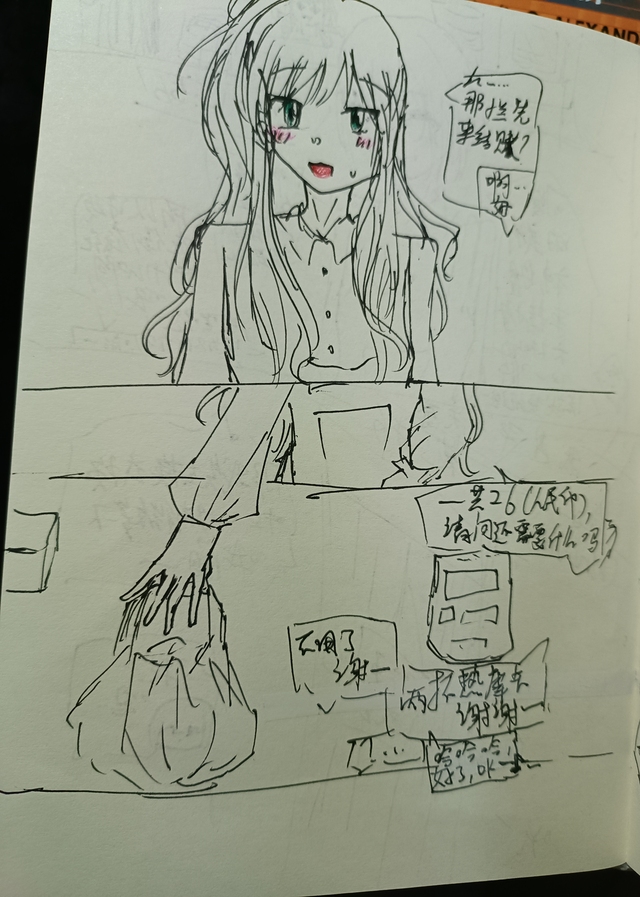 ALEXAND
那拦先
来结账?
哟…
好
一共26(人民币),
请问还需要什么吗?
不用了
谢—
两杯热摩卡
谢谢—
哈哈哈!
好了,OK—